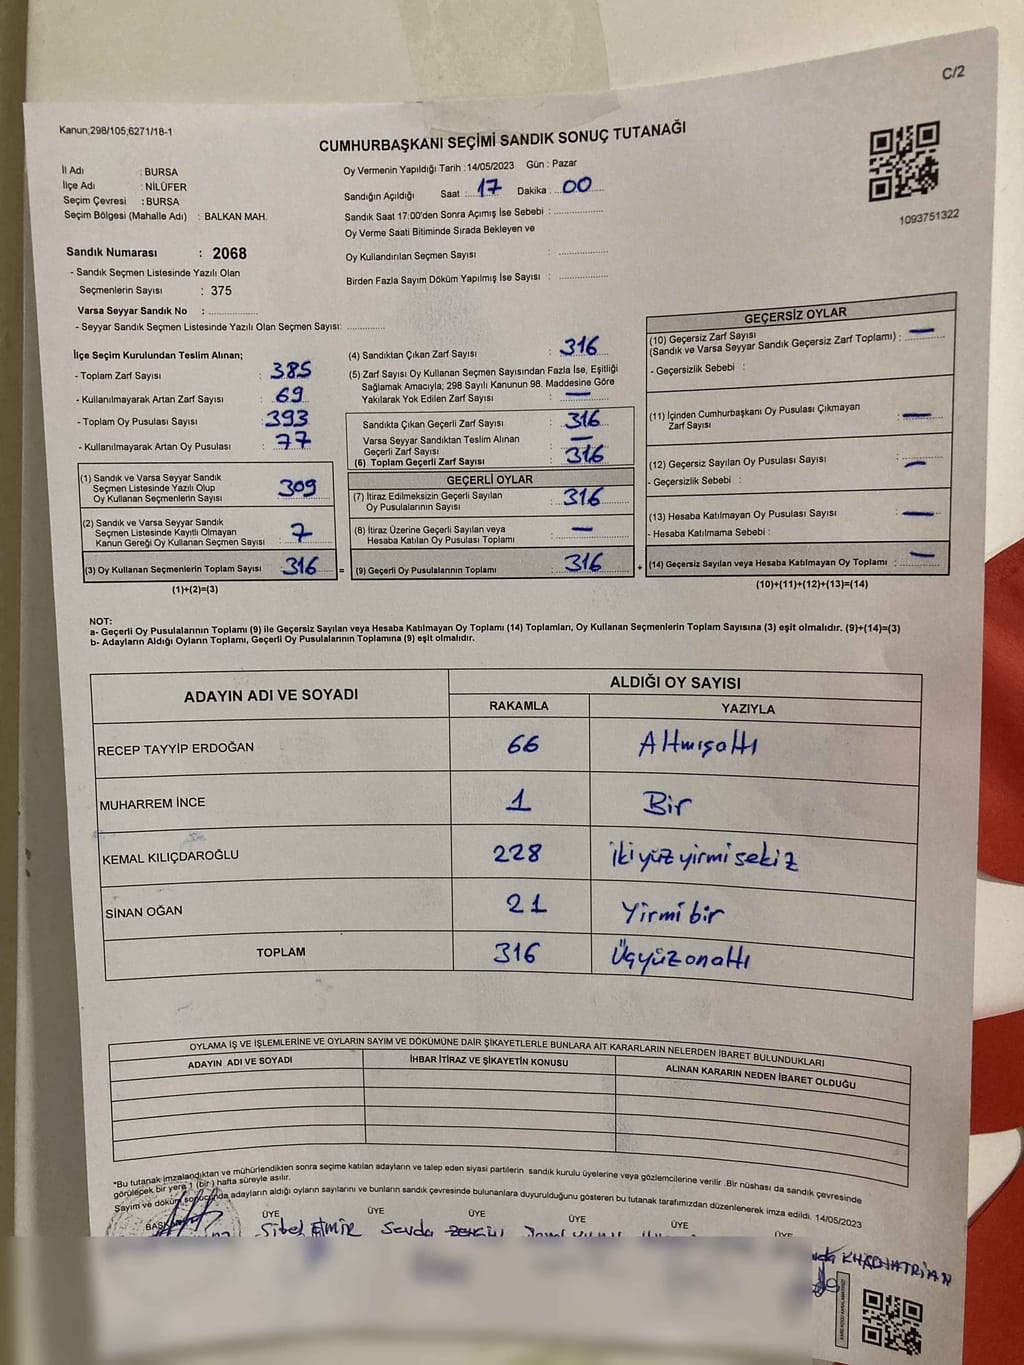 C/2
Kanun;298/105;6271/18-1
CUMHURBAŞKANI SEÇİMİ SANDIK SONUÇ TUTANAĞI
İl Adı : BURSA
İlçe Adı : NİLÜFER
Seçim Çevresi : BURSA
Seçim Bölgesi (Mahalle Adı) : BALKAN MAH.
Oy Vermenin Yapıldığı Tarih :14/05/2023 Gün : Pazar
Sandığın Açıldığı Saat : 17 Dakika : 00
Sandık Saat 17:00'den Sonra Açımış İse Sebebi :
Oy Verme Saati Bitiminde Sırada Bekleyen ve
Oy Kullandırılan Seçmen Sayısı :
Birden Fazla Sayım Döküm Yapılmış İse Sayısı :
1093751322
Sandık Numarası : 2068
- Sandık Seçmen Listesinde Yazılı Olan
Seçmenlerin Sayısı : 375
Varsa Seyyar Sandık No :
- Seyyar Sandık Seçmen Listesinde Yazılı Olan Seçmen Sayısı:
İlçe Seçim Kurulundan Teslim Alınan;
- Toplam Zarf Sayısı : 385
- Kullanılmayarak Artan Zarf Sayısı : 69
- Toplam Oy Pusulası Sayısı : 393
- Kullanılmayarak Artan Oy Pusulası : 77
(1) Sandık ve Varsa Seyyar Sandık
Seçmen Listesinde Yazılı Olup
Oy Kullanan Seçmenlerin Sayısı : 309
(2) Sandık ve Varsa Seyyar Sandık
Seçmen Listesinde Kayıtlı Olmayan
Kanun Gereği Oy Kullanan Seçmen Sayısı : 7
(3) Oy Kullanan Seçmenlerin Toplam Sayısı : 316
(1)+(2)=(3)
(4) Sandıktan Çıkan Zarf Sayısı : 316
(5) Zarf Sayısı Oy Kullanan Seçmen Sayısından Fazla İse, Eşitliği
Sağlamak Amacıyla; 298 Sayılı Kanunun 98. Maddesine Göre
Yakılarak Yok Edilen Zarf Sayısı : —
Sandıkta Çıkan Geçerli Zarf Sayısı : 316
Varsa Seyyar Sandıktan Teslim Alınan
Geçerli Zarf Sayısı : —
(6) Toplam Geçerli Zarf Sayısı : 316
GEÇERLİ OYLAR
(7) İtiraz Edilmeksizin Geçerli Sayılan
Oy Pusulalarının Sayısı : 316
(8) İtiraz Üzerine Geçerli Sayılan veya
Hesaba Katılan Oy Pusulası Toplamı : —
= (9) Geçerli Oy Pusulalarının Toplamı : 316 +
GEÇERSİZ OYLAR
(10) Geçersiz Zarf Sayısı
(Sandık ve Varsa Seyyar Sandık Geçersiz Zarf Toplamı) : —
- Geçersizlik Sebebi :
(11) İçinden Cumhurbaşkanı Oy Pusulası Çıkmayan
Zarf Sayısı : —
(12) Geçersiz Sayılan Oy Pusulası Sayısı : —
- Geçersizlik Sebebi :
(13) Hesaba Katılmayan Oy Pusulası Sayısı : —
- Hesaba Katılmama Sebebi :
(14) Geçersiz Sayılan veya Hesaba Katılmayan Oy Toplamı : —
(10)+(11)+(12)+(13)=(14)
NOT:
a- Geçerli Oy Pusulalarının Toplamı (9) ile Geçersiz Sayılan veya Hesaba Katılmayan Oy Toplamı (14) Toplamları, Oy Kullanan Seçmenlerin Toplam Sayısına (3) eşit olmalıdır. (9)+(14)=(3)
b- Adayların Aldığı Oyların Toplamı, Geçerli Oy Pusulalarının Toplamına (9) eşit olmalıdır.
ADAYIN ADI VE SOYADI ALDIĞI OY SAYISI
RAKAMLA YAZIYLA
RECEP TAYYİP ERDOĞAN 66 Altmışaltı
MUHARREM İNCE 1 Bir
KEMAL KILIÇDAROĞLU 228 ikiyüzyirmisekiz
SİNAN OĞAN 21 Yirmibir
TOPLAM 316 Üçyüzonaltı
OYLAMA İŞ VE İŞLEMLERİNE VE OYLARIN SAYIM VE DÖKÜMÜNE DAİR ŞİKAYETLERLE BUNLARA AİT KARARLARIN NELERDEN İBARET BULUNDUKLARI
ADAYIN ADI VE SOYADI İHBAR İTİRAZ VE ŞİKAYETİN KONUSU ALINAN KARARIN NEDEN İBARET OLDUĞU
*Bu tutanak imzalandıktan ve mühürlendikten sonra seçime katılan adayların ve talep eden siyasi partilerin sandık kurulu üyelerine veya gözlemcilerine verilir. Bir nüshası da sandık çevresinde
görülecek bir yere 1 (bir) hafta süreyle asılır.
Sayım ve döküm sonucunda adayların aldığı oyların sayılarını ve bunların sandık çevresinde bulunanlara duyurulduğunu gösteren bu tutanak tarafımızdan düzenlenerek imza edildi. 14/05/2023
ÜYE ÜYE ÜYE ÜYE ÜYE ÜYE
Sibel Sevda
KHACHATRIAN